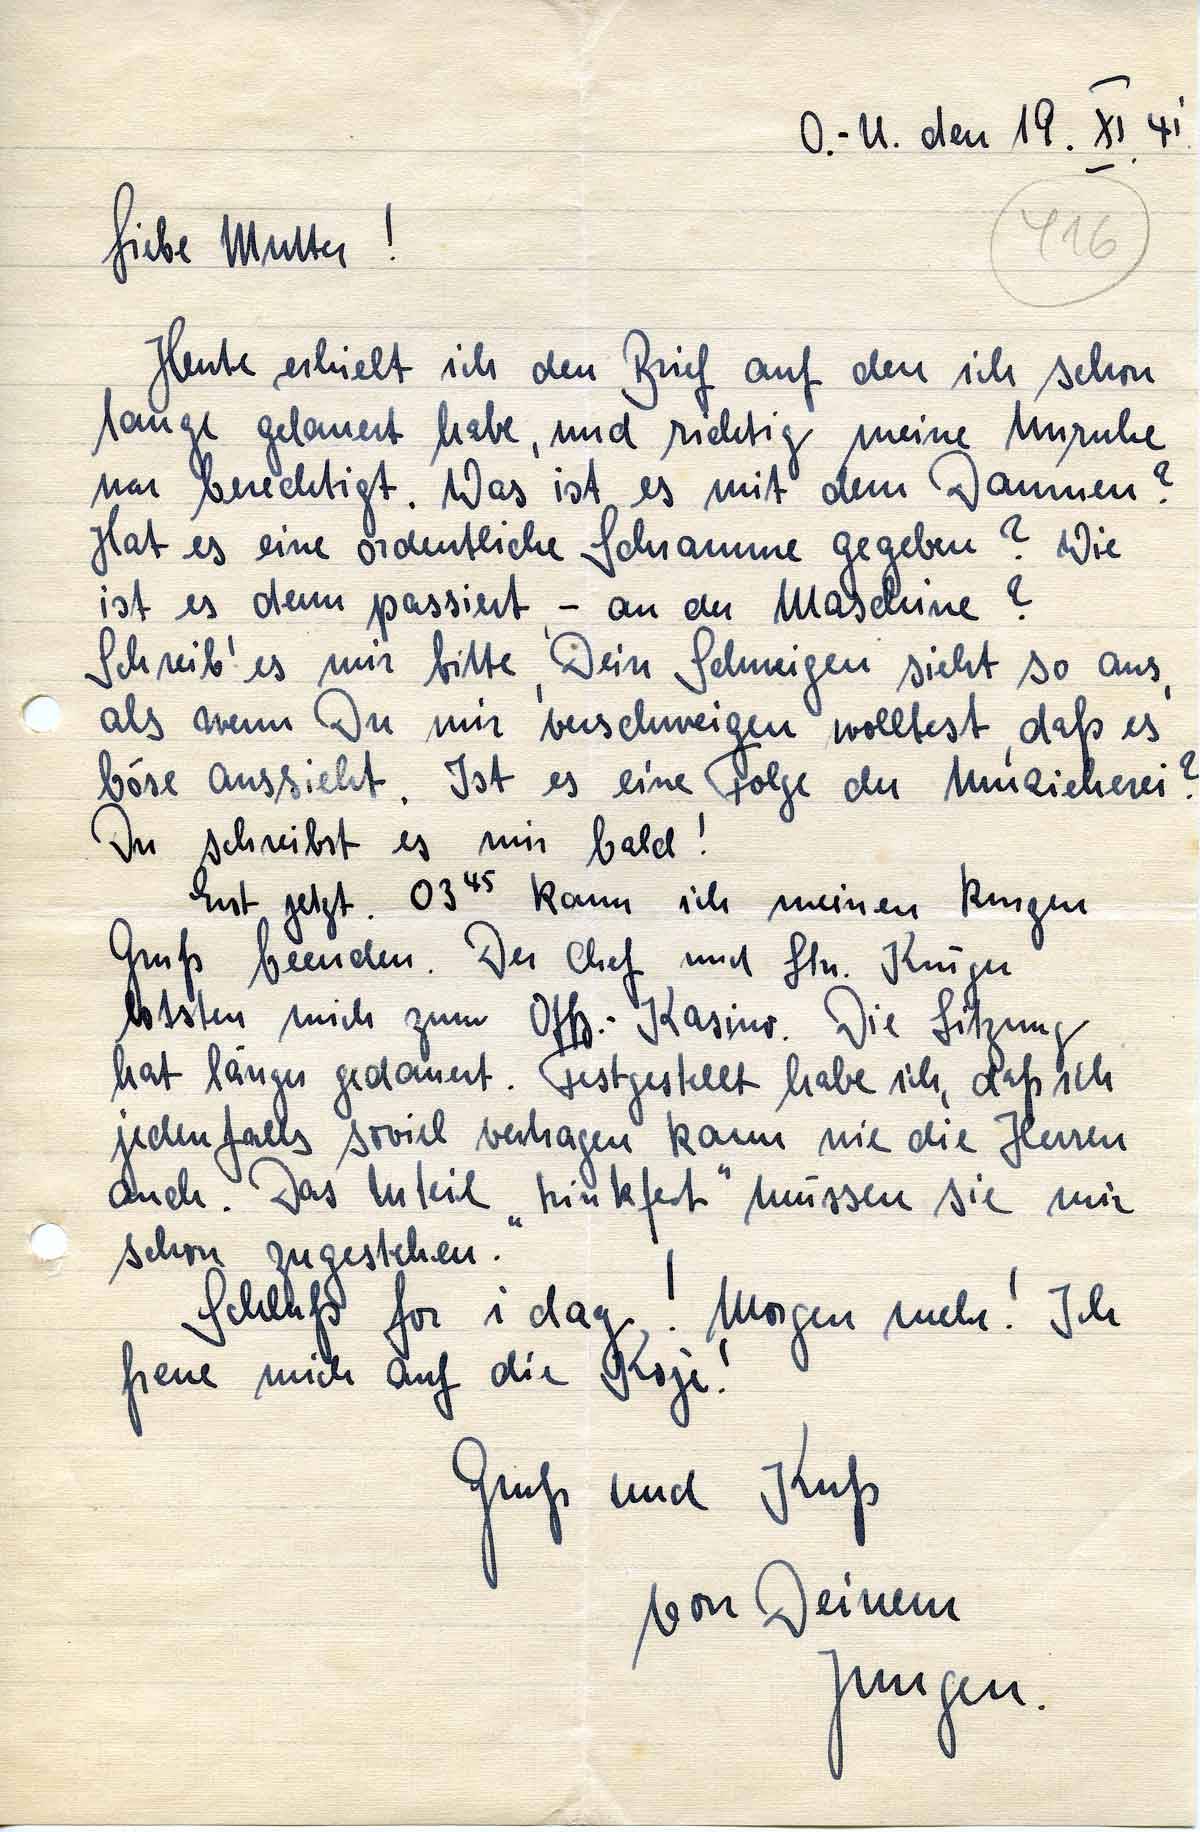 O.-U. den 19. XI. 41.
416
Liebe Mutter!
Heute erhielt ich den Brief auf den ich schon
lange gelauert habe, und richtig meine Unruhe
war berechtigt. Was ist es mit dem Daumen?
Hat es eine ordentliche Schramme gegeben? Wie
ist es denn passiert, – an der Maschine?
Schreib' es mir bitte, Dein Schweigen sieht so aus,
als wenn Du mir verschweigen wolltest, daß es
böse aussieht. Ist es eine Folge der
Du schreibst es mir bald!
Erst jetzt. 03 45 kann ich meinen kurzen
Gruß beenden. Der Chef und Ltn. Krüger
lotsten mich zum Offz.-Kasino. Die Sitzung
hat länger gedauert. Festgestellt habe ich, daß ich
jedenfalls soviel vertragen kann wie die Herren
auch. Das Urteil „trinkfest“ müssen sie mir
schon zugestehen.
Schluß for i dag! Morgen mehr! Ich
freue mich auf die Koje!
Gruß und Kuß
von Deinem
Jungen.